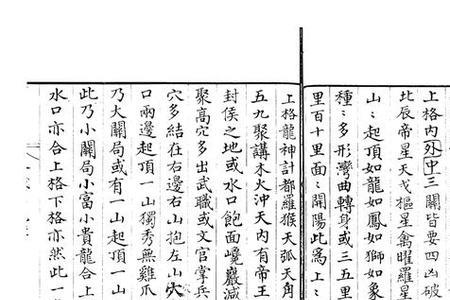 上格內外中三關皆要四凶破
北辰帝星天戈樞星禽曜羅星
山:起頂如龍如鳳如獅如象
種:多形灣曲轉身或三五里
里百十里面:開陽此爲上:
上格龍神計都羅猴天弧天角
五九聚講木火沖天內有帝王
封侯之地或水口飽面巉巖減
聚高穴多出武職或文官掌兵
穴多結在右邊右山抱左山穴
口兩邊起頂一山獨秀無雞爪
乃大關局或有一山起頂一山
此乃小關局小富小貴龍合上
水口亦合上格下格亦然此一